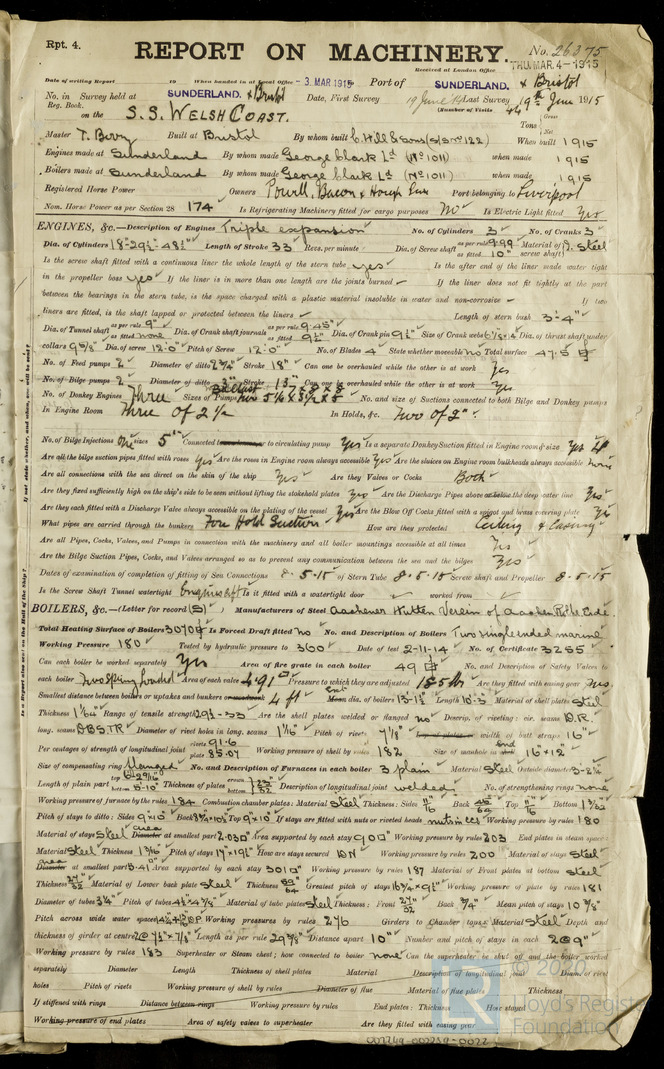 Rpt. 4.
REPORT ON MACHINERY.
No. 26375
THU. MAR. 4-1915
Received at London Office
Date of writing Report 19 When handed in at Local Office -3. MAR 1915 Port of SUNDERLAND. & Bristol
No. in Survey held at SUNDERLAND. & Bristol Date, First Survey 19 June 14 Last Survey 19th June 1915
Reg. Book.
(Number of Visits 44
on the S.S. WELSH COAST.
Tons Gross Net
Master T. Berry Built at Bristol By whom built C. Hill & Sons (S/S No 122) When built 1915
Engines made at Sunderland By whom made George Clark Ld (No 1011) when made 1915
Boilers made at Sunderland By whom made George Clark Ld (No 1011) when made 1915
Registered Horse Power Owners Powell, Bacon & Hough Lines Port belonging to Liverpool
Nom. Horse Power as per Section 28 174 Is Refrigerating Machinery fitted for cargo purposes No Is Electric Light fitted Yes
ENGINES, &c.—Description of Engines Triple expansion No. of Cylinders 3 No. of Cranks 3
Dia. of Cylinders 18-29½-48½" Length of Stroke 33 Revs. per minute Dia. of Screw shaft as per rule 9.99 as fitted 10" Material of screw shaft S. Steel
Is the screw shaft fitted with a continuous liner the whole length of the stern tube yes Is the after end of the liner made water tight
in the propeller boss yes If the liner is in more than one length are the joints burned If the liner does not fit tightly at the part
between the bearings in the stern tube, is the space charged with a plastic material insoluble in water and non-corrosive If two
liners are fitted, is the shaft lapped or protected between the liners Length of stern bush 3'-4"
Dia. of Tunnel shaft as per rule 9" as fitted none Dia. of Crank shaft journals as per rule 9.45" as fitted 9½" Dia. of Crank pin 9½" Size of Crank webs Dia. of thrust shaft under
collars 9⅝" Dia. of screw 12'-0" Pitch of Screw 12'-0" No. of Blades 4 State whether moveable no Total surface 47.5
No. of Feed pumps 2 Diameter of ditto 2¾" Stroke 18" Can one be overhauled while the other is at work Yes
No. of Bilge pumps 2 Diameter of ditto Stroke Can one be overhauled while the other is at work Yes
No. of Donkey Engines Three Sizes of Pumps No. and size of Suctions connected to both Bilge and Donkey pumps
In Engine Room Three of 2½ In Holds, &c. Two of 2"
No. of Bilge Injections One sizes 5" Connected to circulating pump Yes Is a separate Donkey Suction fitted in Engine room & size Yes
Are all the bilge suction pipes fitted with roses Yes Are the roses in Engine room always accessible Yes Are the sluices on Engine room bulkheads always accessible none
Are all connections with the sea direct on the skin of the ship Yes Are they Valves or Cocks Both
Are they fixed sufficiently high on the ship's side to be seen without lifting the stokehold plates Yes Are the Discharge Pipes above or below the deep water line Yes
Are they each fitted with a Discharge Valve always accessible on the plating of the vessel Yes Are the Blow Off Cocks fitted with a spigot and brass covering plate Yes
What pipes are carried through the bunkers Fore Hold Suction How are they protected Ceiling & Casing
Are all Pipes, Cocks, Valves, and Pumps in connection with the machinery and all boiler mountings accessible at all times Yes
Are the Bilge Suction Pipes, Cocks, and Valves arranged so as to prevent any communication between the sea and the bilges Yes
Dates of examination of completion of fitting of Sea Connections 8-5-15 of Stern Tube 8-5-15 Screw shaft and Propeller 8-5-15
Is the Screw Shaft Tunnel watertight Engines aft Is it fitted with a watertight door worked from
BOILERS, &c.—(Letter for record (S)) Manufacturers of Steel Aachener Hutten Verein of Aachen Rothe Erde.
Total Heating Surface of Boilers 3070 Is Forced Draft fitted no No. and Description of Boilers Two single ended marine
Working Pressure 180 Tested by hydraulic pressure to 360 Date of test 2-11-14 No. of Certificate 3255
Can each boiler be worked separately Yes Area of fire grate in each boiler 49 No. and Description of Safety Valves to
each boiler Two Spring loaded Area of each valve 4.91 Pressure to which they are adjusted 185 lbs Are they fitted with easing gear Yes
Smallest distance between boilers or uptakes and bunkers 4 ft Mean dia. of boilers 13'-1½" Length 10'-3" Material of shell plates Steel
Thickness Range of tensile strength 29½-33 Are the shell plates welded or flanged no Descrip. of riveting: cir. seams D.R.
long. seams DBS.TR Diameter of rivet holes in long. seams 1 1/16" Pitch of rivets 7⅛" width of butt straps 16"
Per centages of strength of longitudinal joint rivets 91.6 plate 85.07 Working pressure of shell by rules 182 Size of manhole in end 16"×12"
Size of compensating ring Flanged No. and Description of Furnaces in each boiler 3 plain Material Steel Outside diameter
Length of plain part top bottom Thickness of plates crown bottom Description of longitudinal joint welded No. of strengthening rings none
Working pressure of furnace by the rules 184 Combustion chamber plates: Material Steel Thickness: Sides Back Top Bottom
Pitch of stays to ditto: Sides 9×10 Back Top 9×10 If stays are fitted with nuts or riveted heads nuts in ccs Working pressure by rules 180
Material of stays Steel area Diameter at smallest part 2.030 Area supported by each stay 90 Working pressure by rules 203 End plates in steam space
Material Steel Thickness Pitch of stays 17"×19½" How are stays secured DN Working pressure by rules 200 Material of stays Steel
area Diameter at smallest part 5.41 Area supported by each stay 301 Working pressure by rules 187 Material of Front plates at bottom Steel
Thickness Material of Lower back plate Steel Thickness Greatest pitch of stays Working pressure of plate by rules 181
Diameter of tubes 3¼" Pitch of tubes Material of tube plates Steel Thickness: Front Back ¾" Mean pitch of stays 10⅜"
Pitch across wide water spaces Working pressures by rules 276 Girders to Chamber tops: Material Steel Depth and
thickness of girder at centre Length as per rule Distance apart 10" Number and pitch of stays in each 2@9"
Working pressure by rules 183 Superheater or Steam chest; how connected to boiler none Can the superheater be shut off and the boiler worked
separately Diameter Length Thickness of shell plates Material Description of longitudinal joint Diam. of rivet
holes Pitch of rivets Working pressure of shell by rules Diameter of flue Material of flue plates Thickness
If stiffened with rings Distance between rings Working pressure by rules End plates: Thickness How stayed
Working pressure of end plates Area of safety valves to superheater Are they fitted with easing gear
Lloyd's Register
Foundation
002249-002259-0022